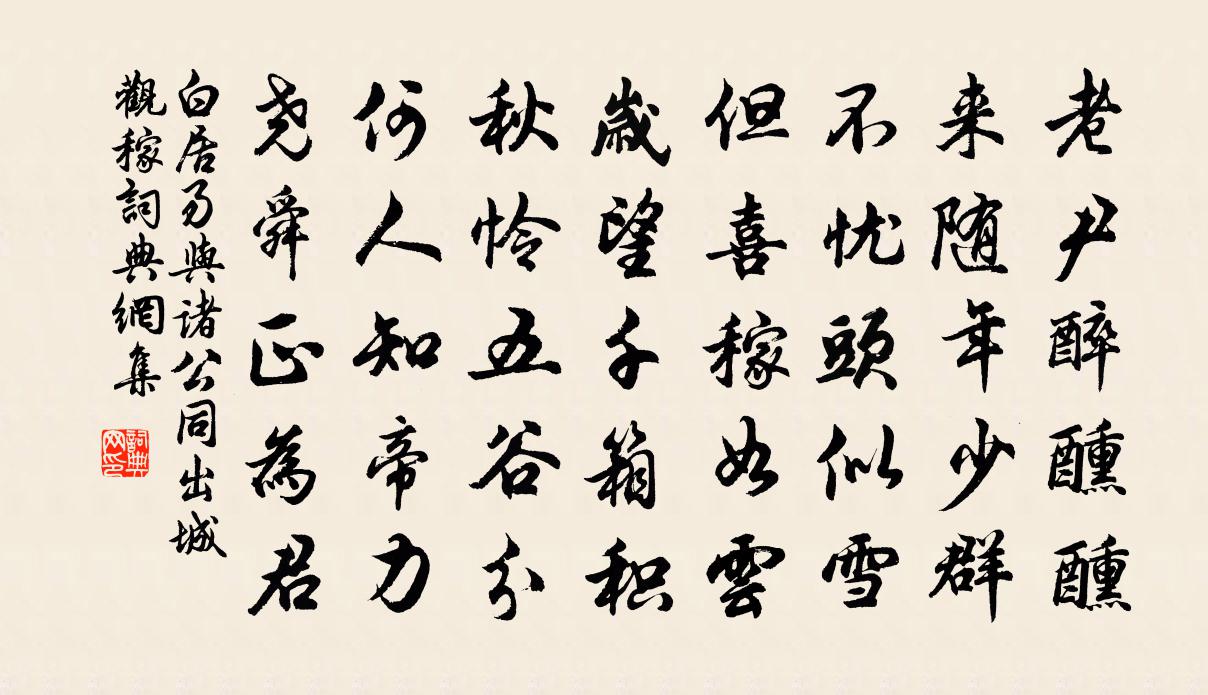 老尹醉醺醺
来随年少群
不忧頭似雪
但喜稼如雲
歲望千箱积
秋怜五谷分
何人知帝力
尧舜正為君
白居易與諸公同出城
觀稼詞典網集
詞典
网印